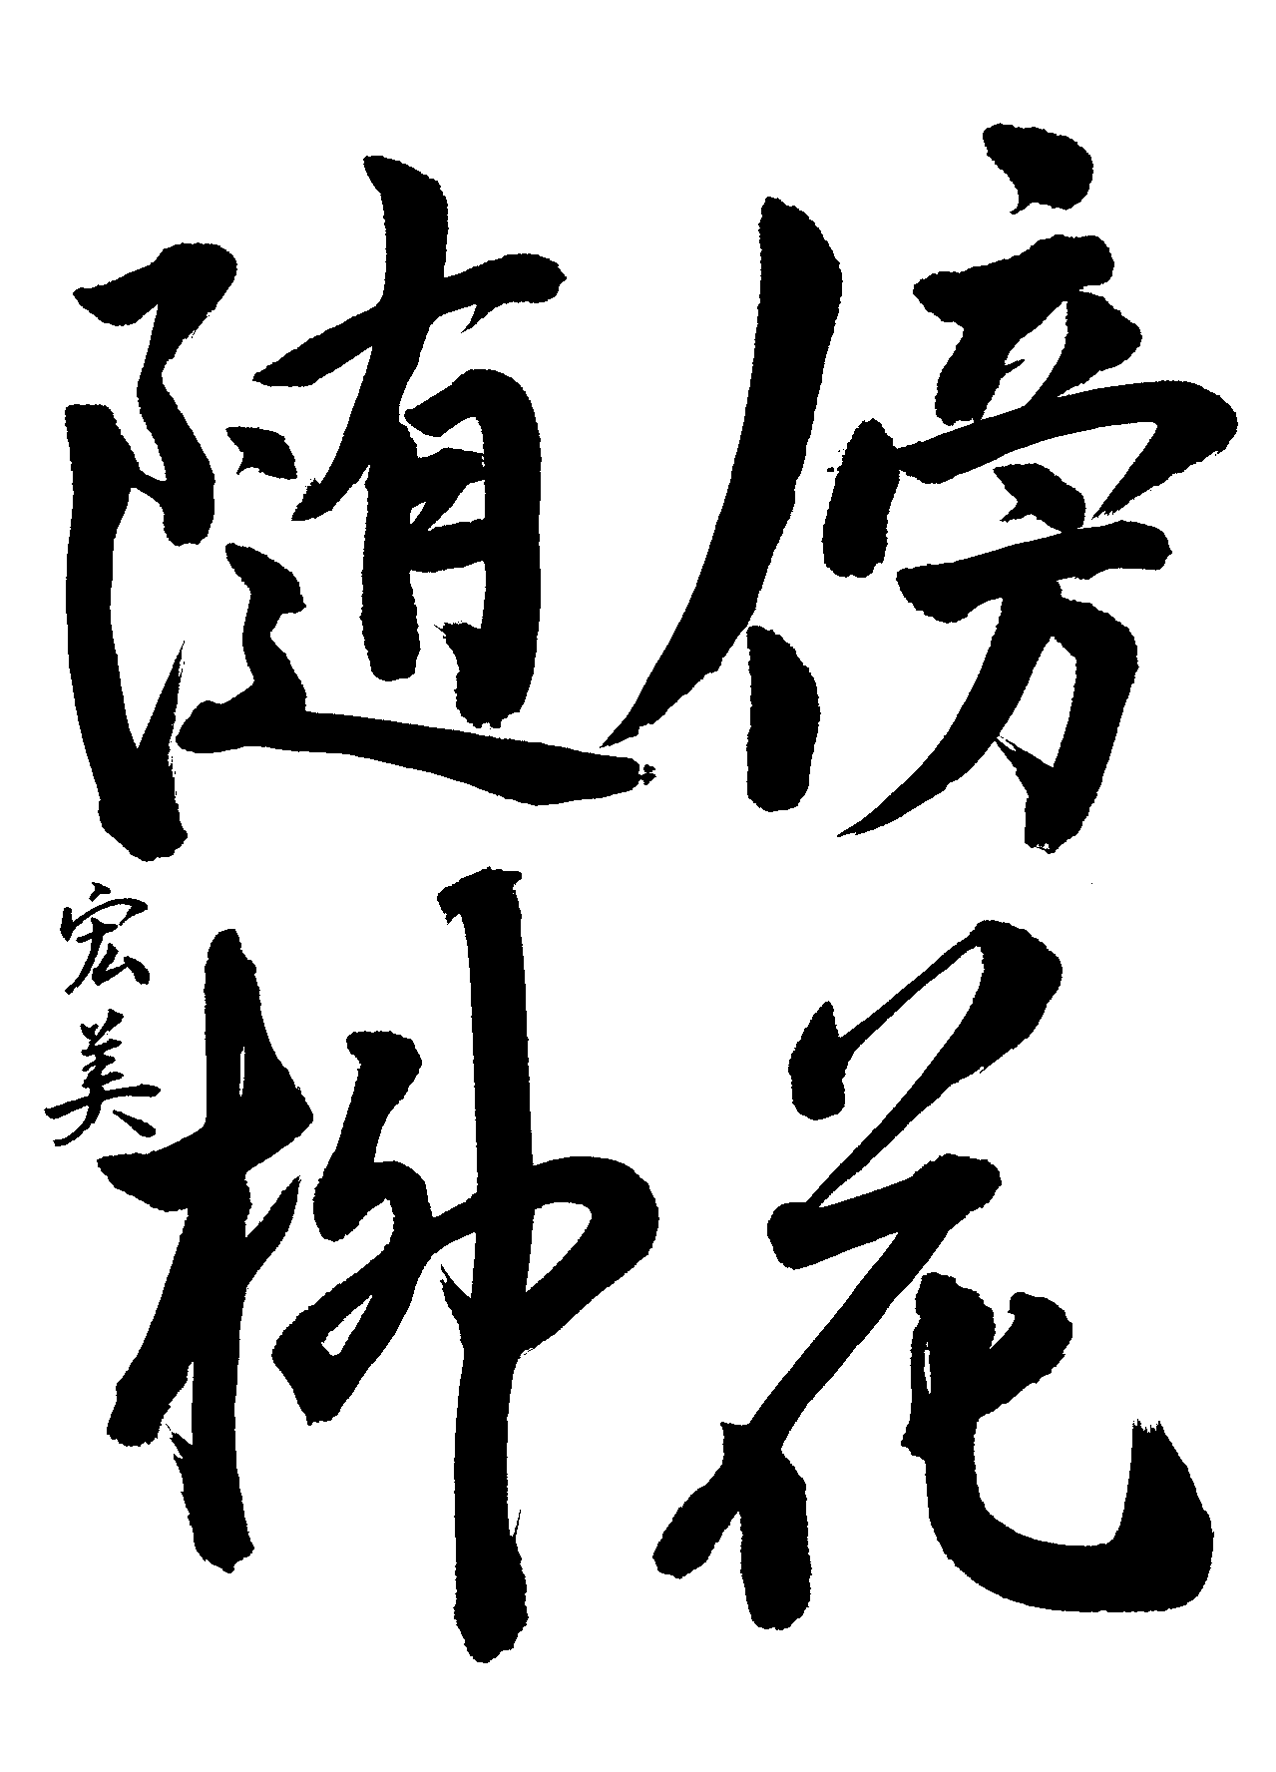 傍花
随柳
宏美